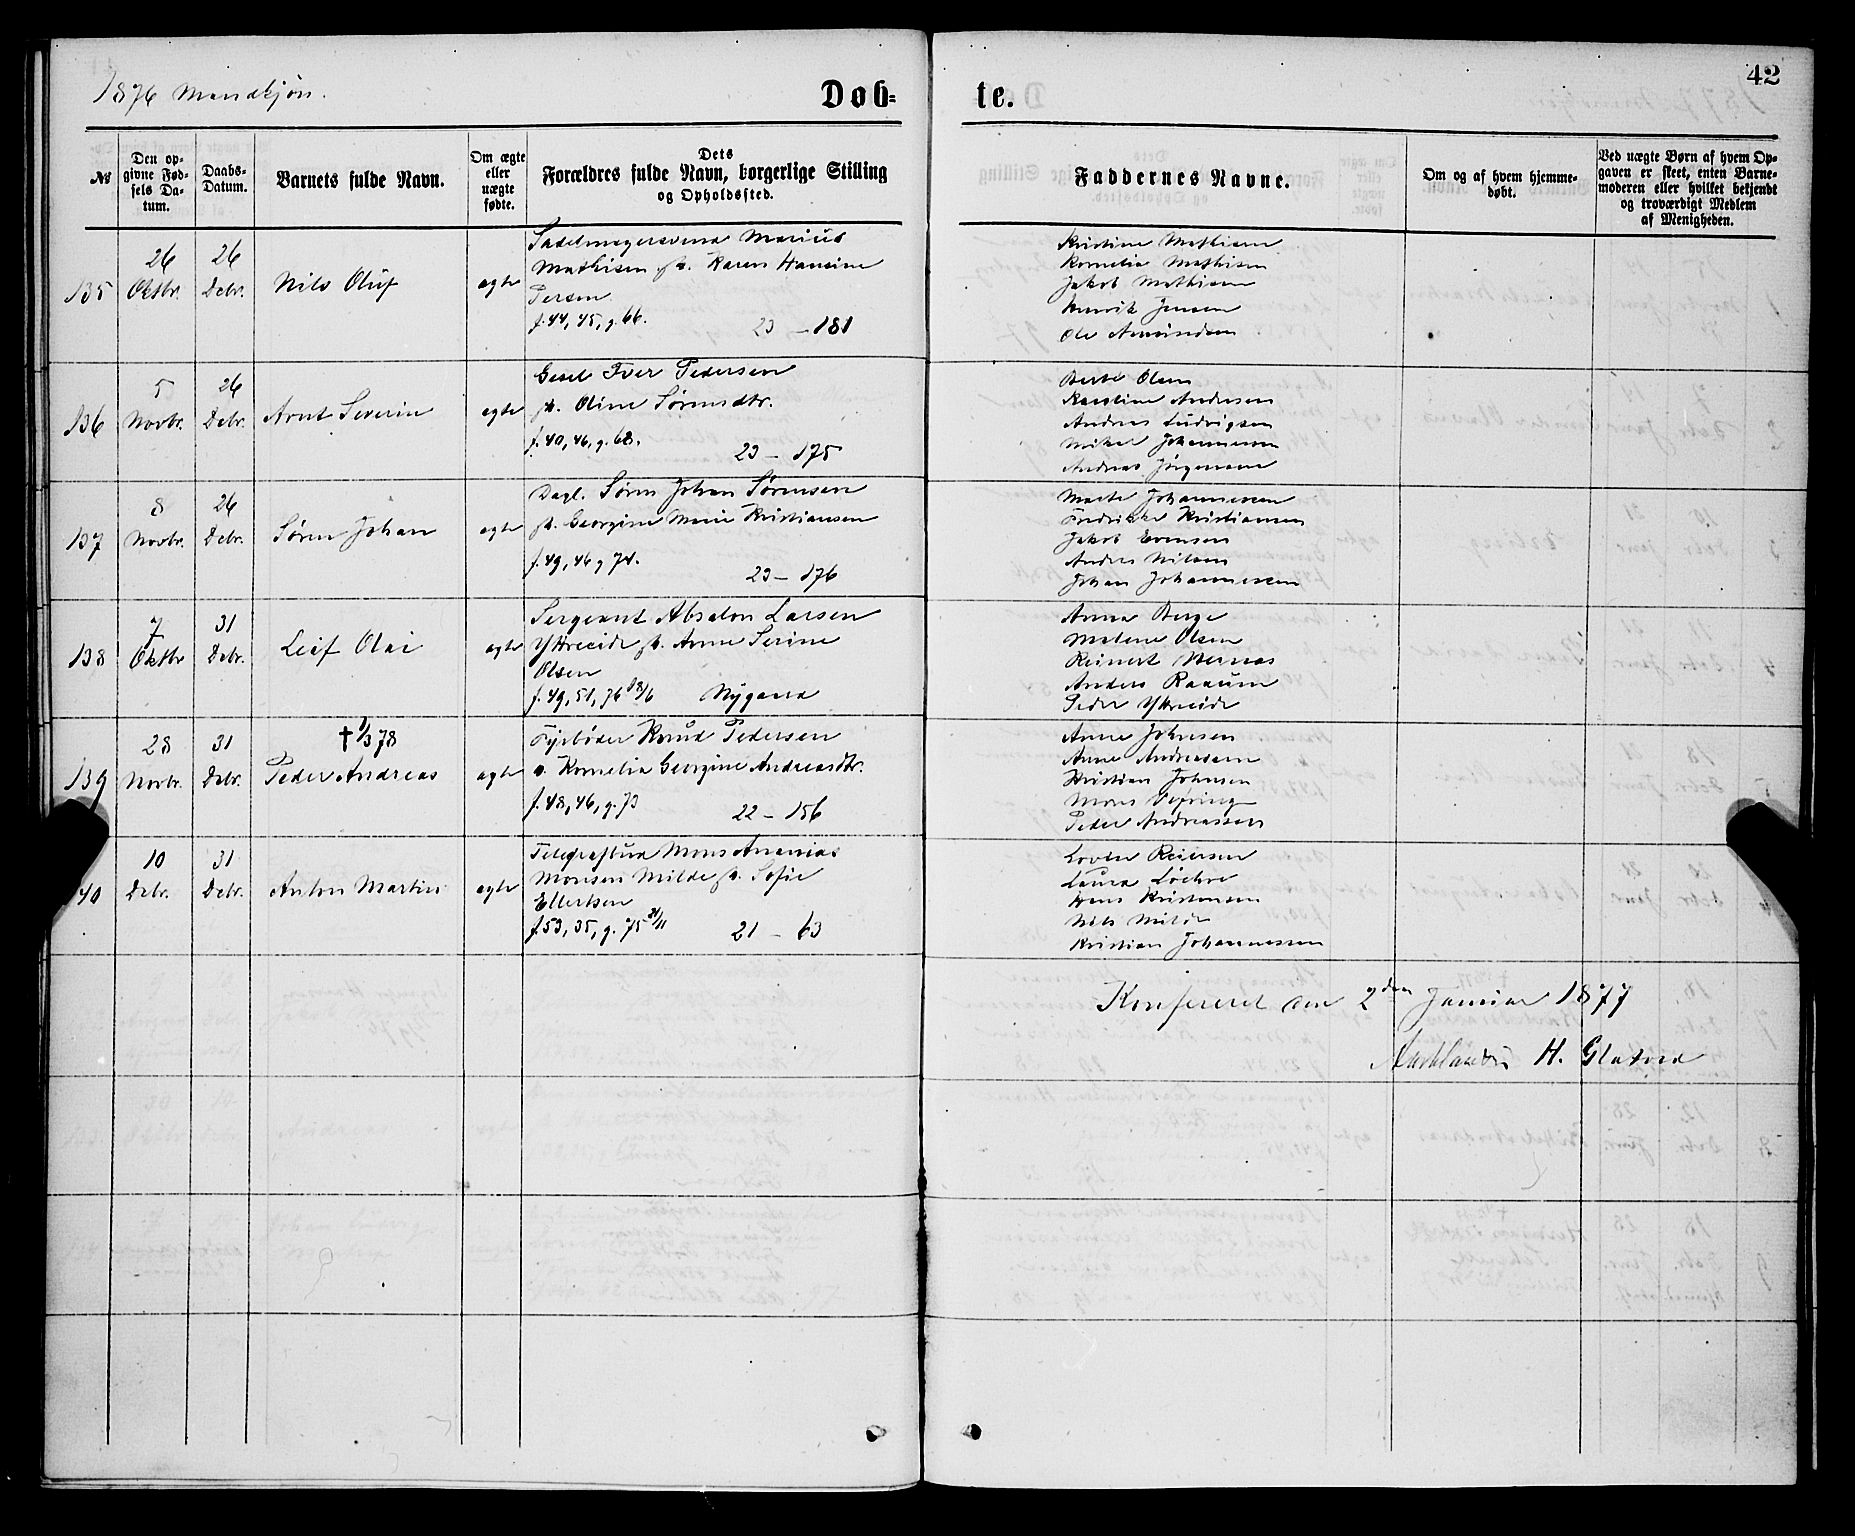 42
1876 Mandkjøn.
Døb=
te.
№
Den op-
givne Fød-
sels Da-
tum.
Daabs-
Datum.
Barnets fulde Navn.
Om ægte
eller
uægte
fødte.
Dets
Forældres fulde Navn, borgerlige Stilling
og Opholdssted.
Faddernes Navne.
Om og af hvem hjemme-
døbt.
Ved uægte Børn af hvem Op-
gaven er skeet, enten Barne-
moderen eller hvilket bekjendt
og troværdigt Medlem
af Menigheden.
135
26
Oktbr.
26
Debr.
Nils Oluf
ægte
Sadelmagersvend Marius
Mathisen h. Karen Hansine
Persen
f. 44, 45, g. 66.
23 - 181
Kristine Mathisen
Kornelia Mathisen
Jakob Mathisen
Henrik Jensen
Ole Amundsen
136
5
Novbr.
26
Debr.
Arnt Severin
ægte
Gesel Iver Pedersen
h. Oline Sørensdtr.
f. 40, 46, g. 68.
23 - 175
Berte Olsen
Karoline Andersen
Andreas Ludvigsen
Mikal Johannesen
Andreas Jörgensen
137
8
Novbr.
26
Debr.
Søren Johan
ægte
Dagl. Søren Johan Sørensen
h. Georgine Marie Kristiansen
f. 49, 46 g 74.
23 - 176
Marte Johannessen
Fredrikke Kristiansen
Jakob Evensen
Anders Nilsen
Johan Johannessen
138
7
Oktbr
31
Debr.
Leif Olai
ægte
Sergeant Absalon Larsen
Ytreeide h. Anne Serine
Olsen
f. 49, 51, 76 18/6 Nygaard
Anna Berge
Malene Olsen
Reinert
Anders Raaum
Peder Ytreeide
139
28
Novbr.
31
Debr.
† 1/3 78
Peder Andreas
ægte
Fyrbøder Knud Pedersen
o. Kornelia Georgine Andreasdtr.
f. 48, 46, g. 73
22 - 156
Anne Johnsen
Anne Andreassen
Kristian Johnsen
Mons
Peder Andreassen
40
10
Debr.
31
Debr.
Anton Martin
ægte
Telegrafbud Mons Ananias
Monsen Milde h. Sofie
Ellertsen
f. 53, 35, g. 75 21/11
21 - 63
Lovise Reiersen
Laura
Hans Kristensen
Nils Milde
Kristian Johannessen
Konfereret den 2den Januar 1877
H.